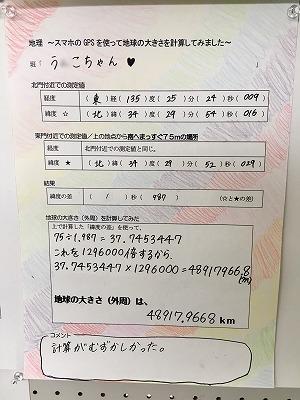 地理 ～スマホのGPSを使って地球の大きさを計算してみました～
班「う こちゃん ♥ 」
北門付近での測定値
経度 ( 東 )経( 135 )度( 25 )分( 24 )秒( 009 )
緯度 ☆ ( 北 )緯( 34 )度( 29 )分( 54 )秒( 016 )
東門付近での測定値／上の地点から南へまっすぐ75mの場所
経度 北門付近での測定値と同じ。
緯度 ★ ( 北 )緯( 34 )度( 29 )分( 52 )秒( 029 )
結果
緯度の差 ( 1 )秒( 987 ) (☆と★の差)
地球の大きさ（外周）を計算してみた
上で計算した「緯度の差」を使って、
75÷1.987=37.7453447
これを1296000倍するから、
37.7453447×1296000=48917966.8
(m)
地球の大きさ（外周）は、
48917.9668 km
コメント
計算がむずかしかった。